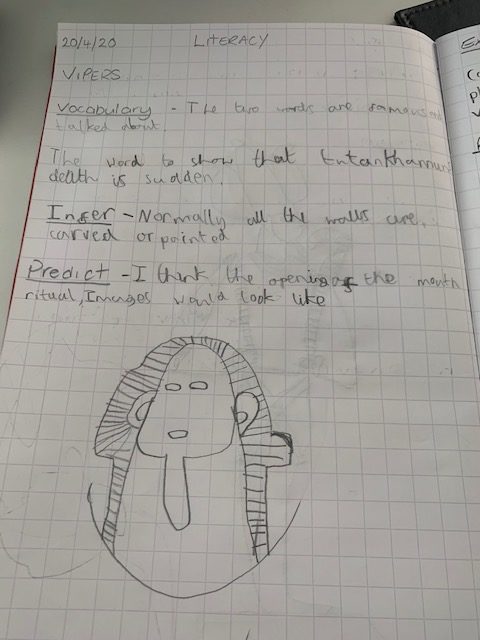 20/4/20 LITERACY
VIPERS
Vocabulary - The two words are famous and
talked about.
The word to show that Tutankhamun
death is sudden.
Infer - Normally all the walls are
carved or painted
Predict - I think the opening of the mouth
ritual, Images would look like